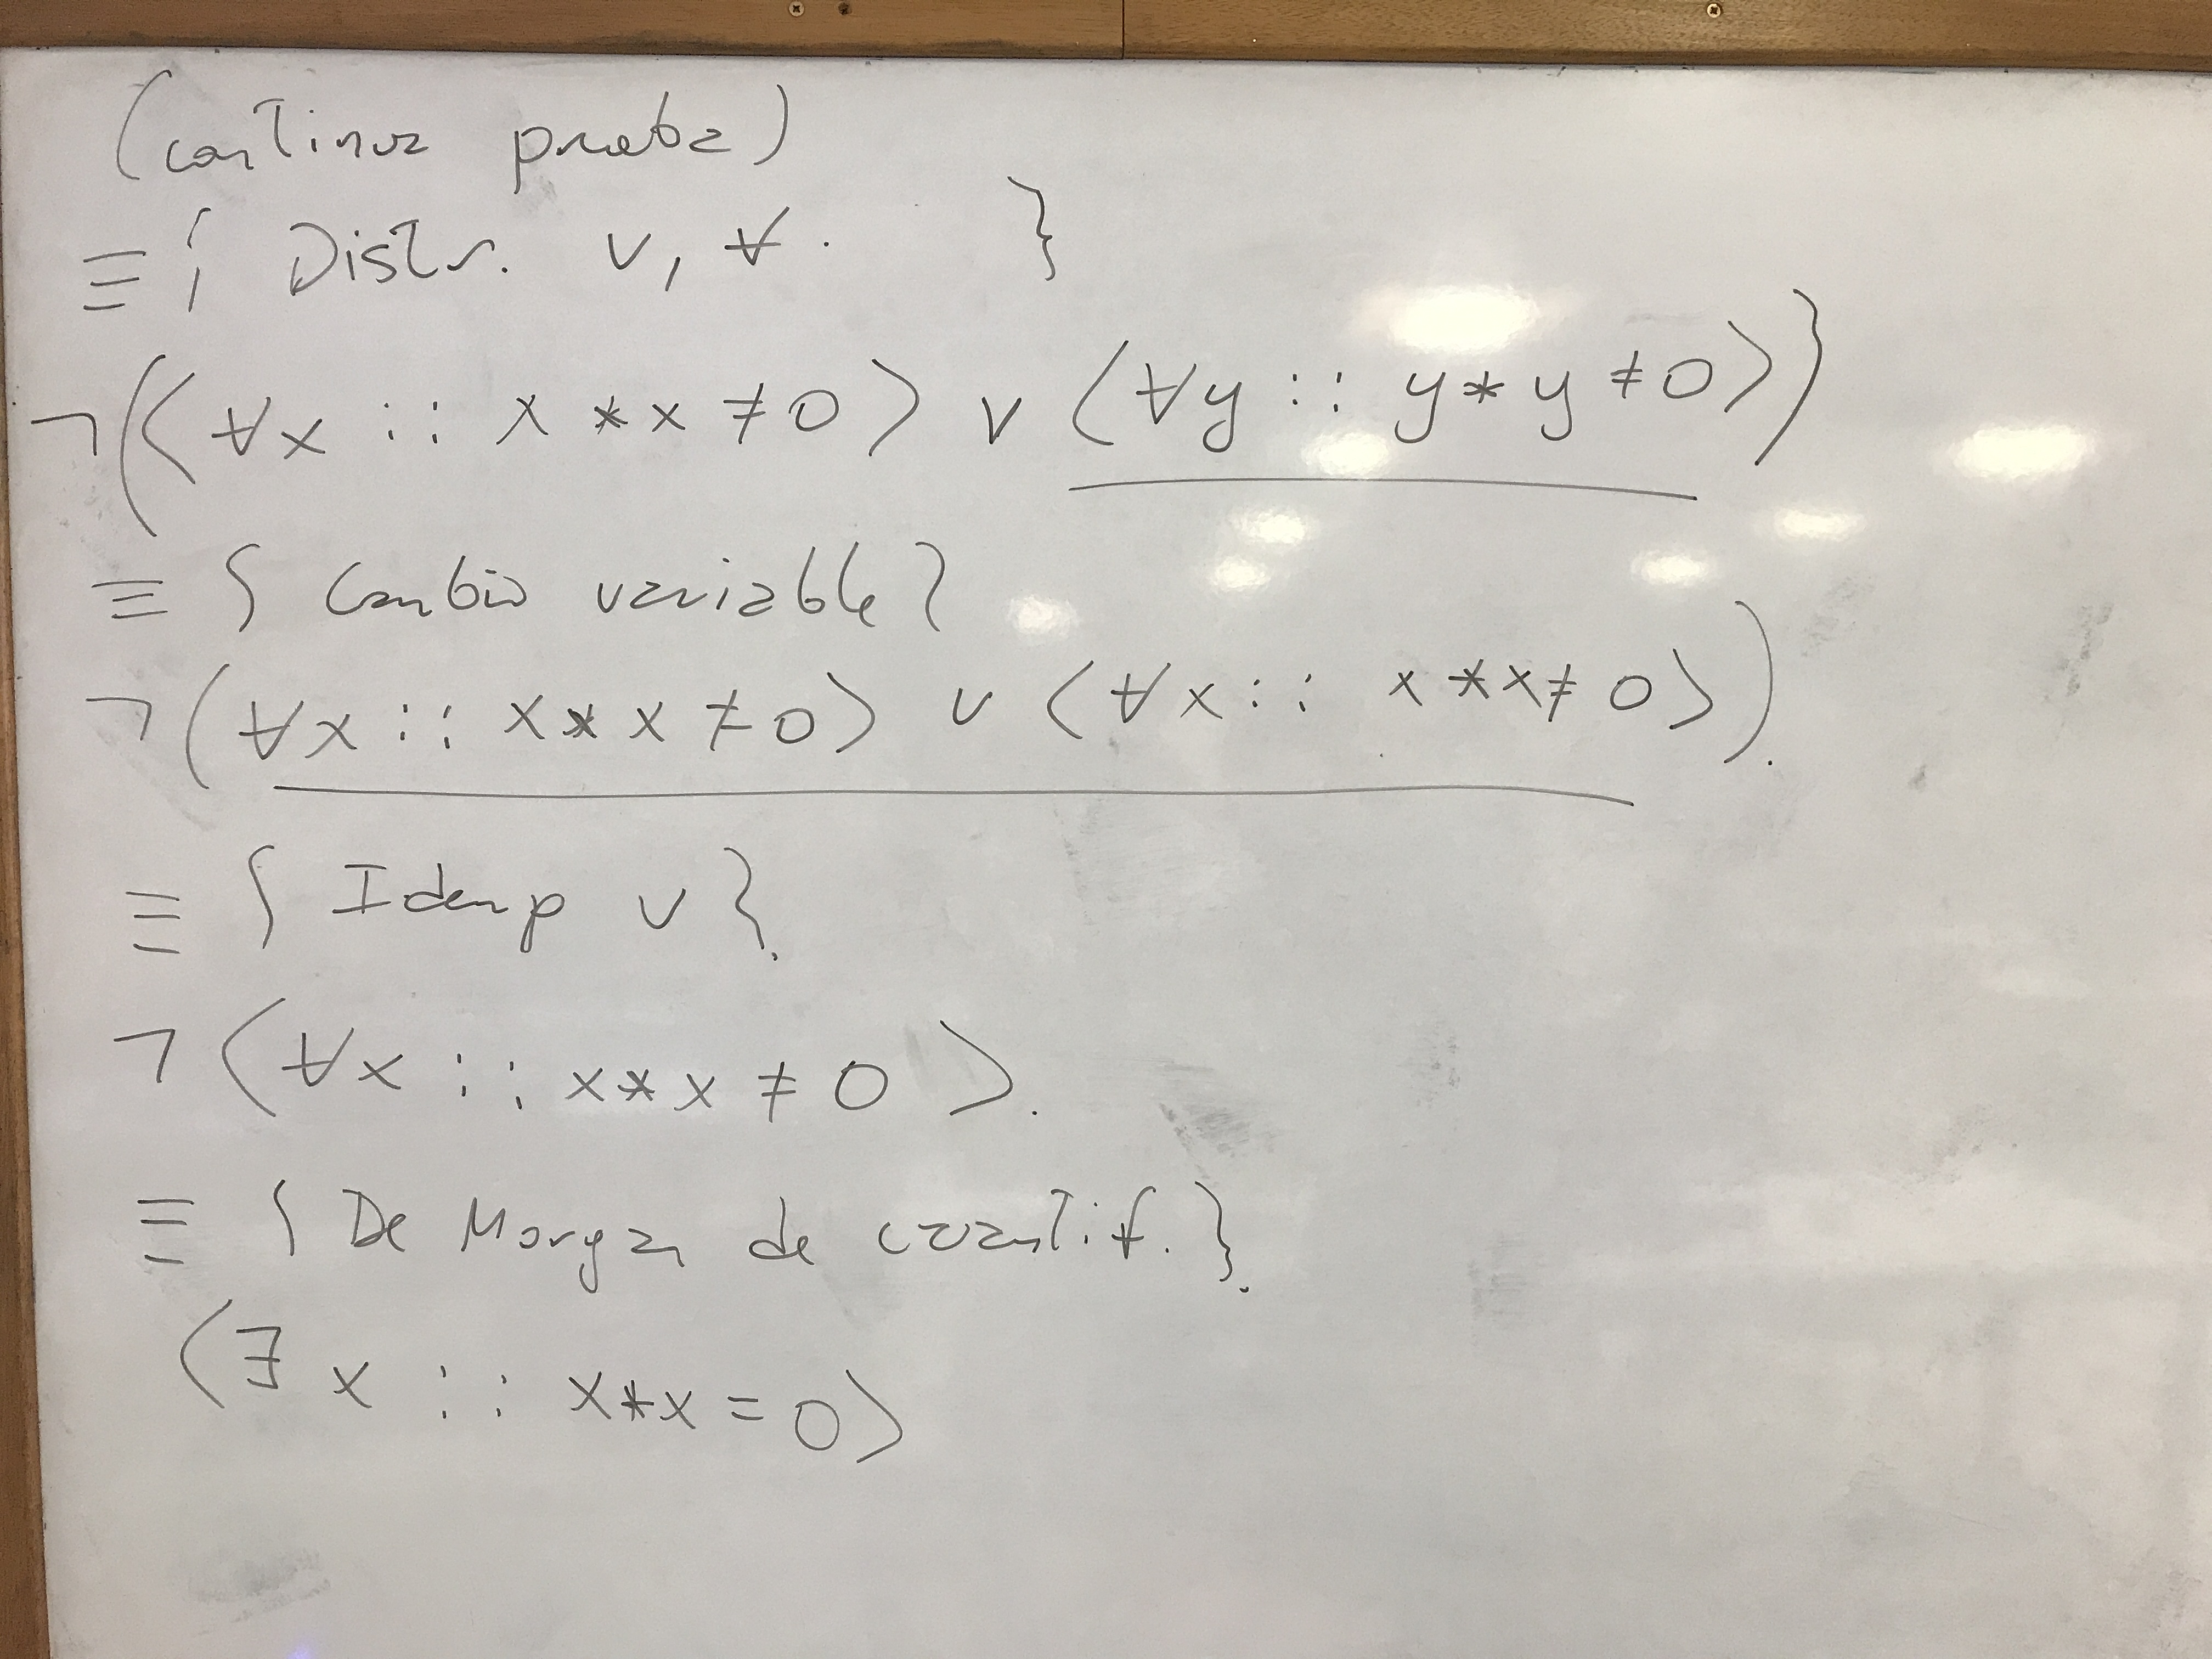 (continua prueba)
≡ { Distr. ∨, ∀. }
¬(⟨∀x :: x * x ≠ 0⟩ ∨ ⟨∀y :: y * y ≠ 0⟩)
≡ { Cambio variable }
¬(∀x :: x * x ≠ 0⟩ ∨ ⟨∀x :: x * x ≠ 0⟩).
≡ { Idemp ∨ }.
¬⟨∀x :: x * x ≠ 0⟩.
≡ { De Morgan de cuantif. }.
⟨∃ x :: x * x = 0⟩